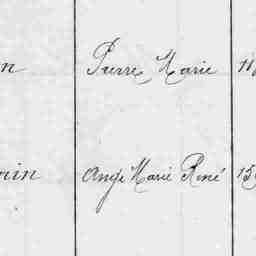 n Pierre Marie 11
nin Ange Marie René 15